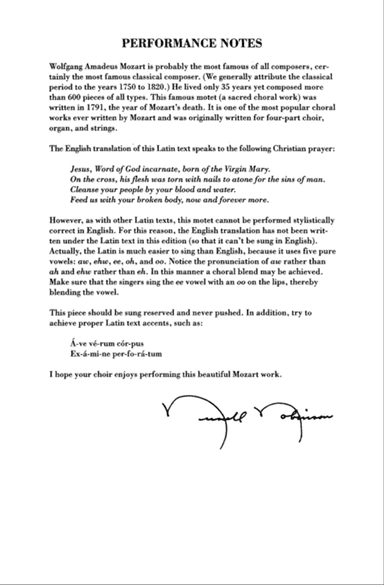 PERFORMANCE NOTES
Wolfgang Amadeus Mozart is probably the most famous of all composers, cer-
tainly the most famous classical composer. (We generally attribute the classical
period to the years 1750 to 1820.) He lived only 35 years yet composed more
than 600 pieces of all types. This famous motet (a sacred choral work) was
written in 1791, the year of Mozart's death. It is one of the most popular choral
works ever written by Mozart and was originally written for four-part choir,
organ, and strings.
The English translation of this Latin text speaks to the following Christian prayer:
Jesus, Word of God incarnate, born of the Virgin Mary.
On the cross, his flesh was torn with nails to atone for the sins of man.
Cleanse your people by your blood and water.
Feed us with your broken body, now and forever more.
However, as with other Latin texts, this motet cannot be performed stylistically
correct in English. For this reason, the English translation has not been writ-
ten under the Latin text in this edition (so that it can't be sung in English).
Actually, the Latin is much easier to sing than English, because it uses five pure
vowels: aw, ehw, ee, oh, and oo. Notice the pronunciation of aw rather than
ah and ehw rather than eh. In this manner a choral blend may be achieved.
Make sure that the singers sing the ee vowel with an oo on the lips, thereby
blending the vowel.
This piece should be sung reserved and never pushed. In addition, try to
achieve proper Latin text accents, such as:
Á-ve vé-rum cór-pus
Ex-á-mi-ne per-fo-rá-tum
I hope your choir enjoys performing this beautiful Mozart work.
Robinson